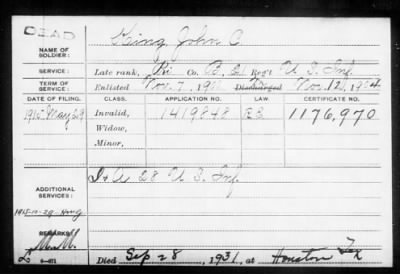 DEAD
NAME OF SOLDIER: King, John C.
SERVICE: Late rank, Co. B, Reg't U. S. Inf.
TERM OF SERVICE: Enlisted Nov. 7, Discharged Nov. 12, 1904
DATE OF FILING. CLASS. APPLICATION NO. LAW. CERTIFICATE NO.
1915 May 29 Invalid, 1419848 1176,970
Widow,
Minor,
ADDITIONAL SERVICES: 28 U. S. Inf.
Died Sep 28, 1931, at Houston Tex